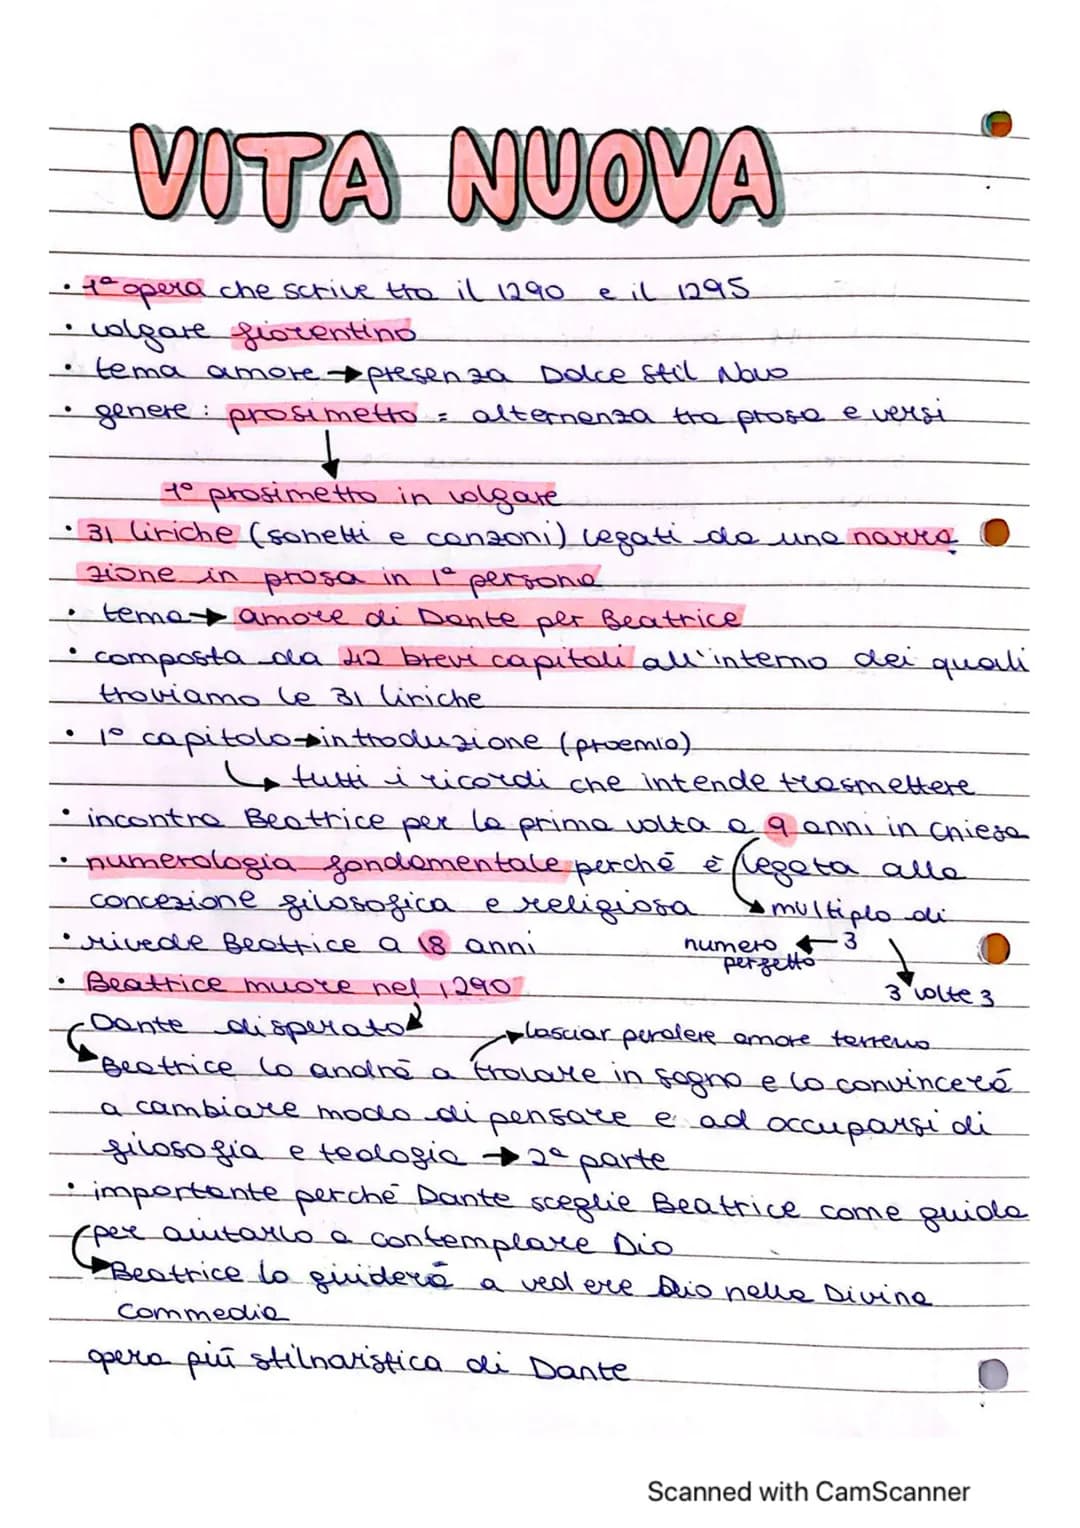 VITA NUOVA
• 1ª opera che scrive tra il 1290 e il 1295
• volgare fiorentino
• tema amore → presenza Dolce Stil Novo
• genere: prosimetro = alternanza tra prosa e versi
↓
1° prosimetro in volgare
• 31 liriche (sonetti e canzoni) legati da una narra
zione in prosa in 1ª persona
• tema → amore di Dante per Beatrice
• composta da 42 brevi capitoli all'interno dei quali
troviamo le 31 liriche
• 1° capitolo → introduzione (proemio)
↳ tutti i ricordi che intende trasmettere
• incontra Beatrice per la prima volta a 9 anni in chiesa
• numerologia fondamentale perché è legata alla
concezione filosofica e religiosa
multiplo di
• rivede Beatrice a 18 anni
numero ← 3
perfetto
3 volte 3
• Beatrice muore nel 1290
Dante disperato
lasciar perdere amore terreno
Beatrice lo andrà a trovare in sogno e lo convincerà
a cambiare modo di pensare e ad occuparsi di
filosofia e teologia → 2ª parte
• importante perché Dante sceglie Beatrice come guida
per aiutarlo a contemplare Dio
Beatrice lo guiderà a vedere Dio nella Divina
Commedia
opera più stilnovistica di Dante
Scanned with CamScanner